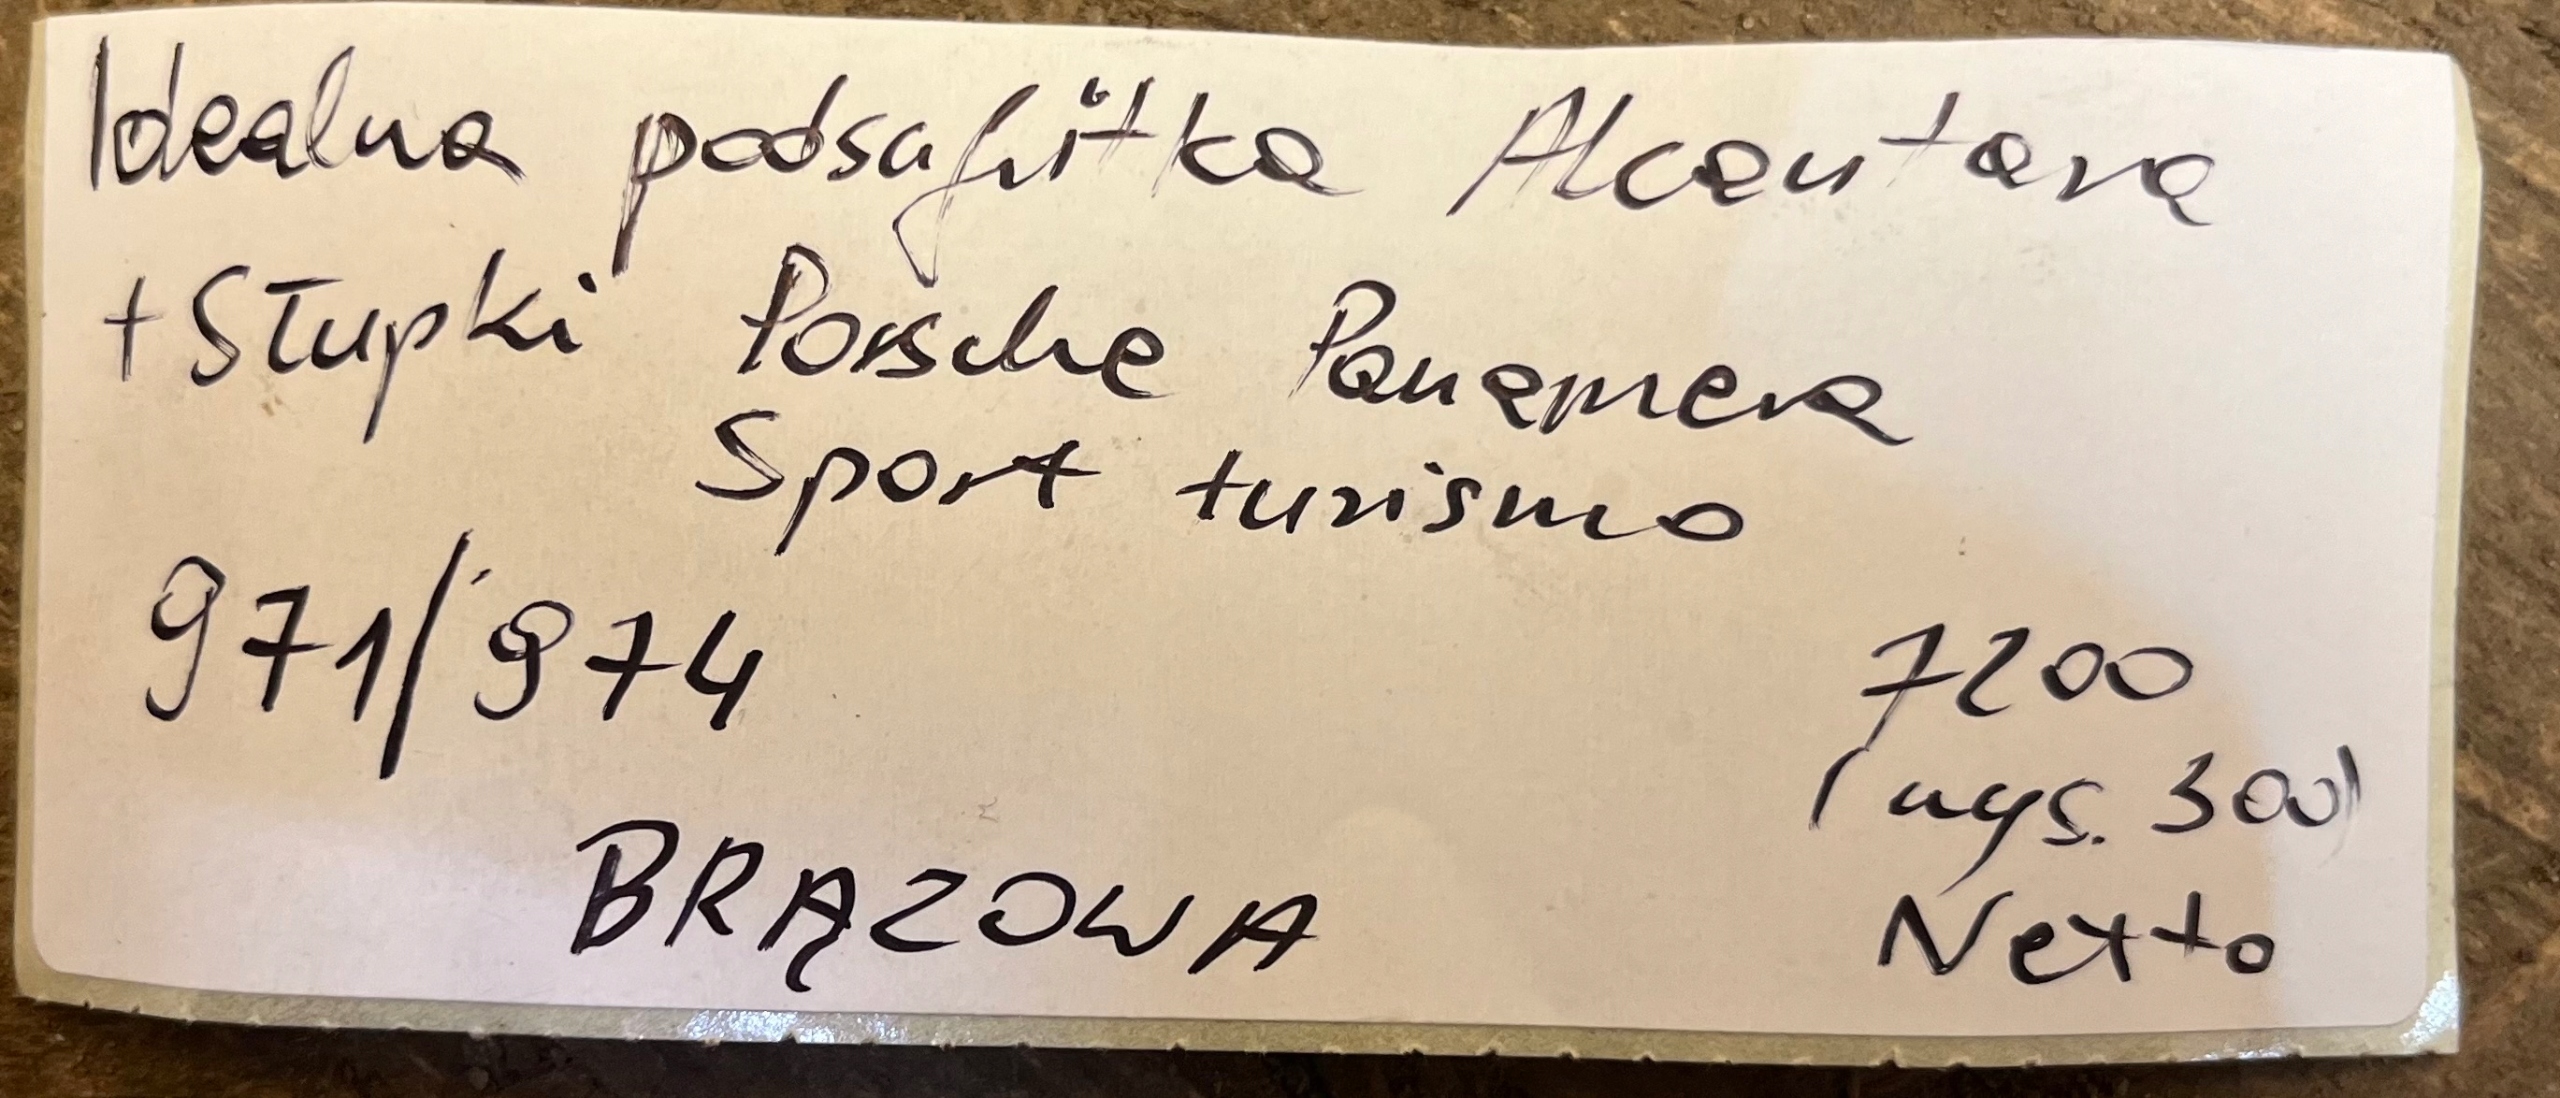 Idealna podsufitka Alcantara
+ Słupki Porsche Panamera
Sport turismo
971/974
7200
(wys. 300)
Netto
BRĄZOWA